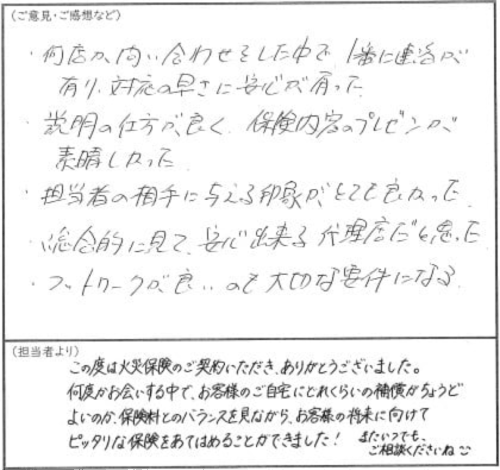 (ご意見・ご感想など)
・何店か、問い合わせをした中で、1番に連絡が
有り、対応の早さに安心が有った
・説明の仕方が良く、保険内容のプレゼンが
素晴しかった
・担当者の相手に与える印象がとても良かった
・総合的に見て、安心出来る代理店だと思った
・フットワークが良いのも大切な要件になる
(担当者より)
この度は火災保険のご契約いただき、ありがとうございました。
何度かお会いする中で、お客様のご自宅にどれくらいの補償がちょうど
よいのか、保険料とのバランスを見ながら、お客様の将来に向けて
ピッタリな保険をあてはめることができました! またいつでも、
ご相談くださいね